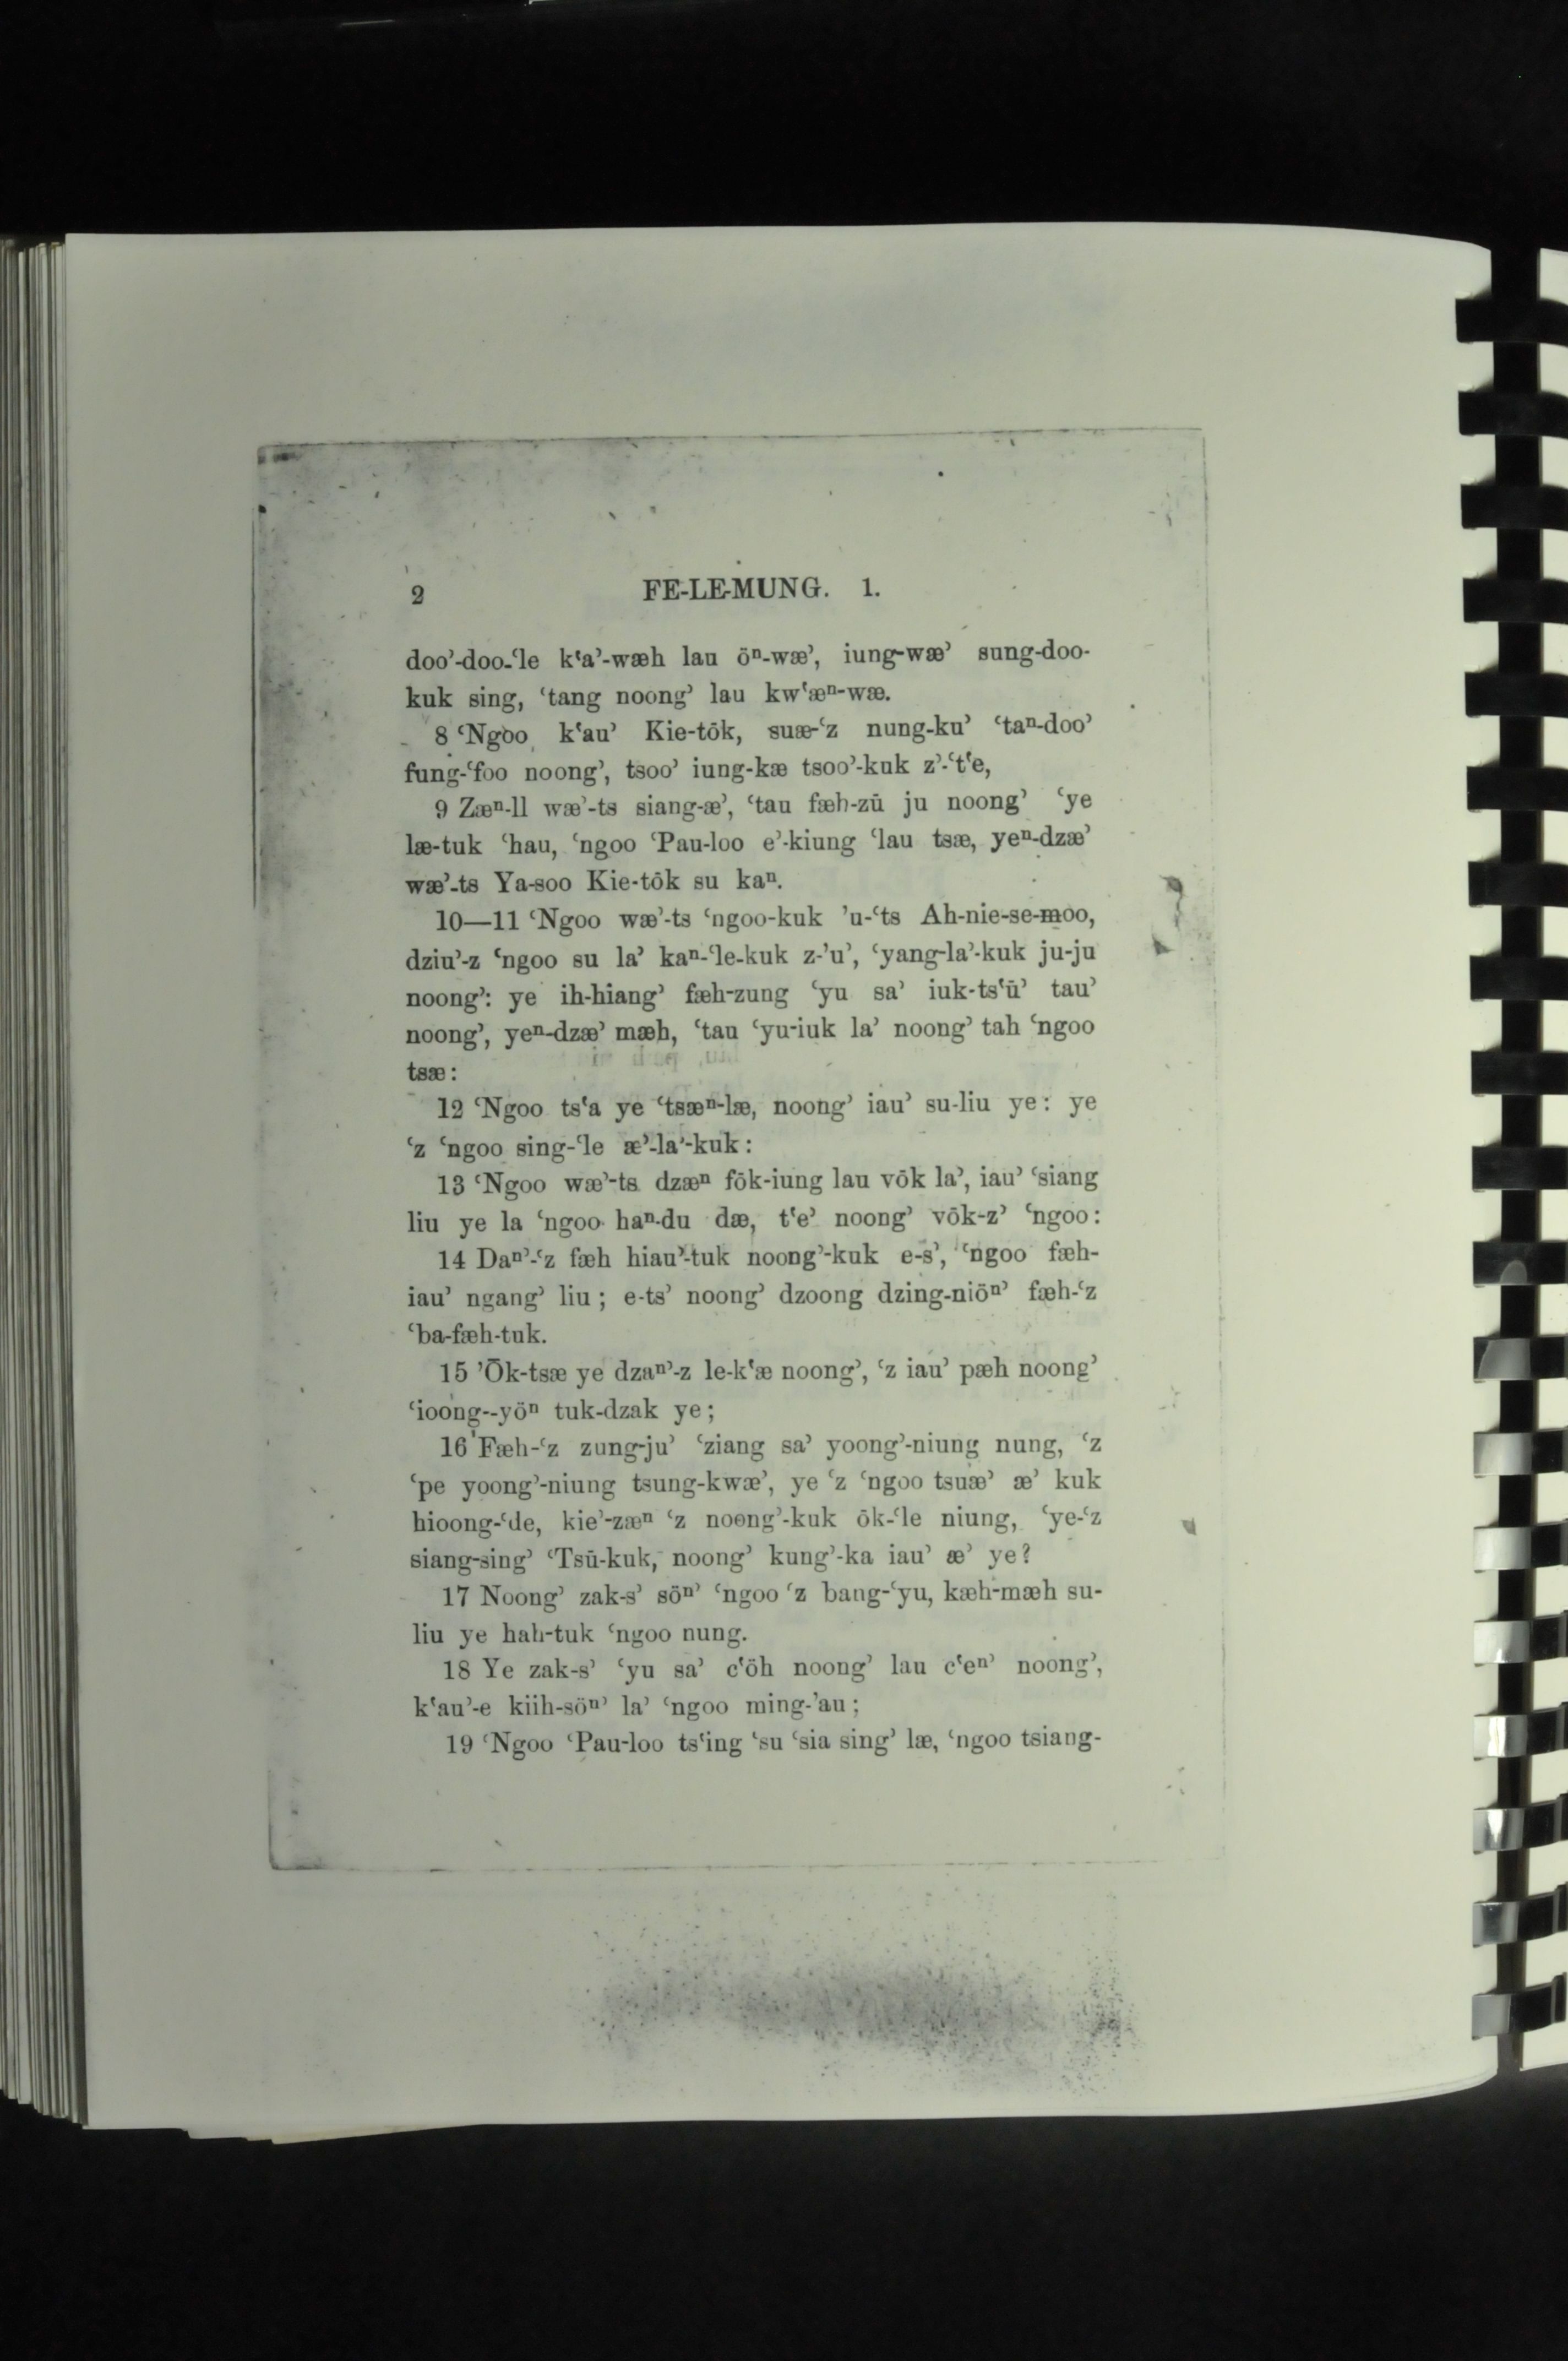 2 FE-LE-MUNG. 1.
doo’-doo-‘le k‘a’-wæh lau öⁿ-wæ’, iung-wæ’ sung-doo-
kuk sing, ‘tang noong’ lau kw‘æⁿ-wæ.
8 ‘Ngoo k‘au’ Kie-tōk, suæ-‘z nung-ku’ ‘taⁿ-doo’
fung-‘foo noong’, tsoo’ iung-kæ tsoo’-kuk z’-‘t‘e,
9 Zæⁿ-ll wæ’-ts siang-æ’, ‘tau fæh-zū ju noong’ ‘ye
læ-tuk ‘hau, ‘ngoo ‘Pau-loo e’-kiung ‘lau tsæ, yeⁿ-dzæ’
wæ’-ts Ya-soo Kie-tōk su kaⁿ.
10—11 ‘Ngoo wæ’-ts ‘ngoo-kuk ’u-‘ts Ah-nie-se-moo,
dziu’-z ‘ngoo su la’ kaⁿ-‘le-kuk z-’u’, ‘yang-la’-kuk ju-ju
noong’: ye ih-hiang’ fæh-zung ‘yu sa’ iuk-ts‘ū’ tau’
noong’, yeⁿ-dzæ’ mæh, ‘tau ‘yu-iuk la’ noong’ tah ‘ngoo
tsæ:
12 ‘Ngoo ts‘a ye ‘tsæⁿ-læ, noong’ iau’ su-liu ye: ye
‘z ‘ngoo sing-‘le æ’-la’-kuk:
13 ‘Ngoo wæ’-ts dzæⁿ fōk-iung lau vōk la’, iau’ ‘siang
liu ye la ‘ngoo haⁿ-du dæ, t‘e’ noong’ vōk-z’ ‘ngoo:
14 Daⁿ’-‘z fæh hiau’-tuk noong’-kuk e-s’, ‘ngoo fæh-
iau’ ngang’ liu; e-ts’ noong’ dzoong dzing-niöⁿ’ fæh-‘z
‘ba-fæh-tuk.
15 ’Ōk-tsæ ye dzaⁿ’-z le-k‘æ noong’, ‘z iau’ pæh noong’
‘ioong--yöⁿ tuk-dzak ye;
16 Fæh-‘z zung-ju’ ‘ziang sa’ yoong’-niung nung, ‘z
‘pe yoong’-niung tsung-kwæ’, ye ‘z ‘ngoo tsuæ’ æ’ kuk
hioong-‘de, kie’-zæⁿ ‘z noong’-kuk ōk-‘le niung, ‘ye-‘z
siang-sing’ ‘Tsū-kuk, noong’ kung’-ka iau’ æ’ ye?
17 Noong’ zak-s’ söⁿ’ ‘ngoo ‘z bang-‘yu, kæh-mæh su-
liu ye hah-tuk ‘ngoo nung.
18 Ye zak-s’ ‘yu sa’ c‘öh noong’ lau c‘eⁿ’ noong’,
k‘au’-e kiih-söⁿ’ la’ ‘ngoo ming-’au;
19 ‘Ngoo ‘Pau-loo ts‘ing ‘su ‘sia sing’ læ, ‘ngoo tsiang-